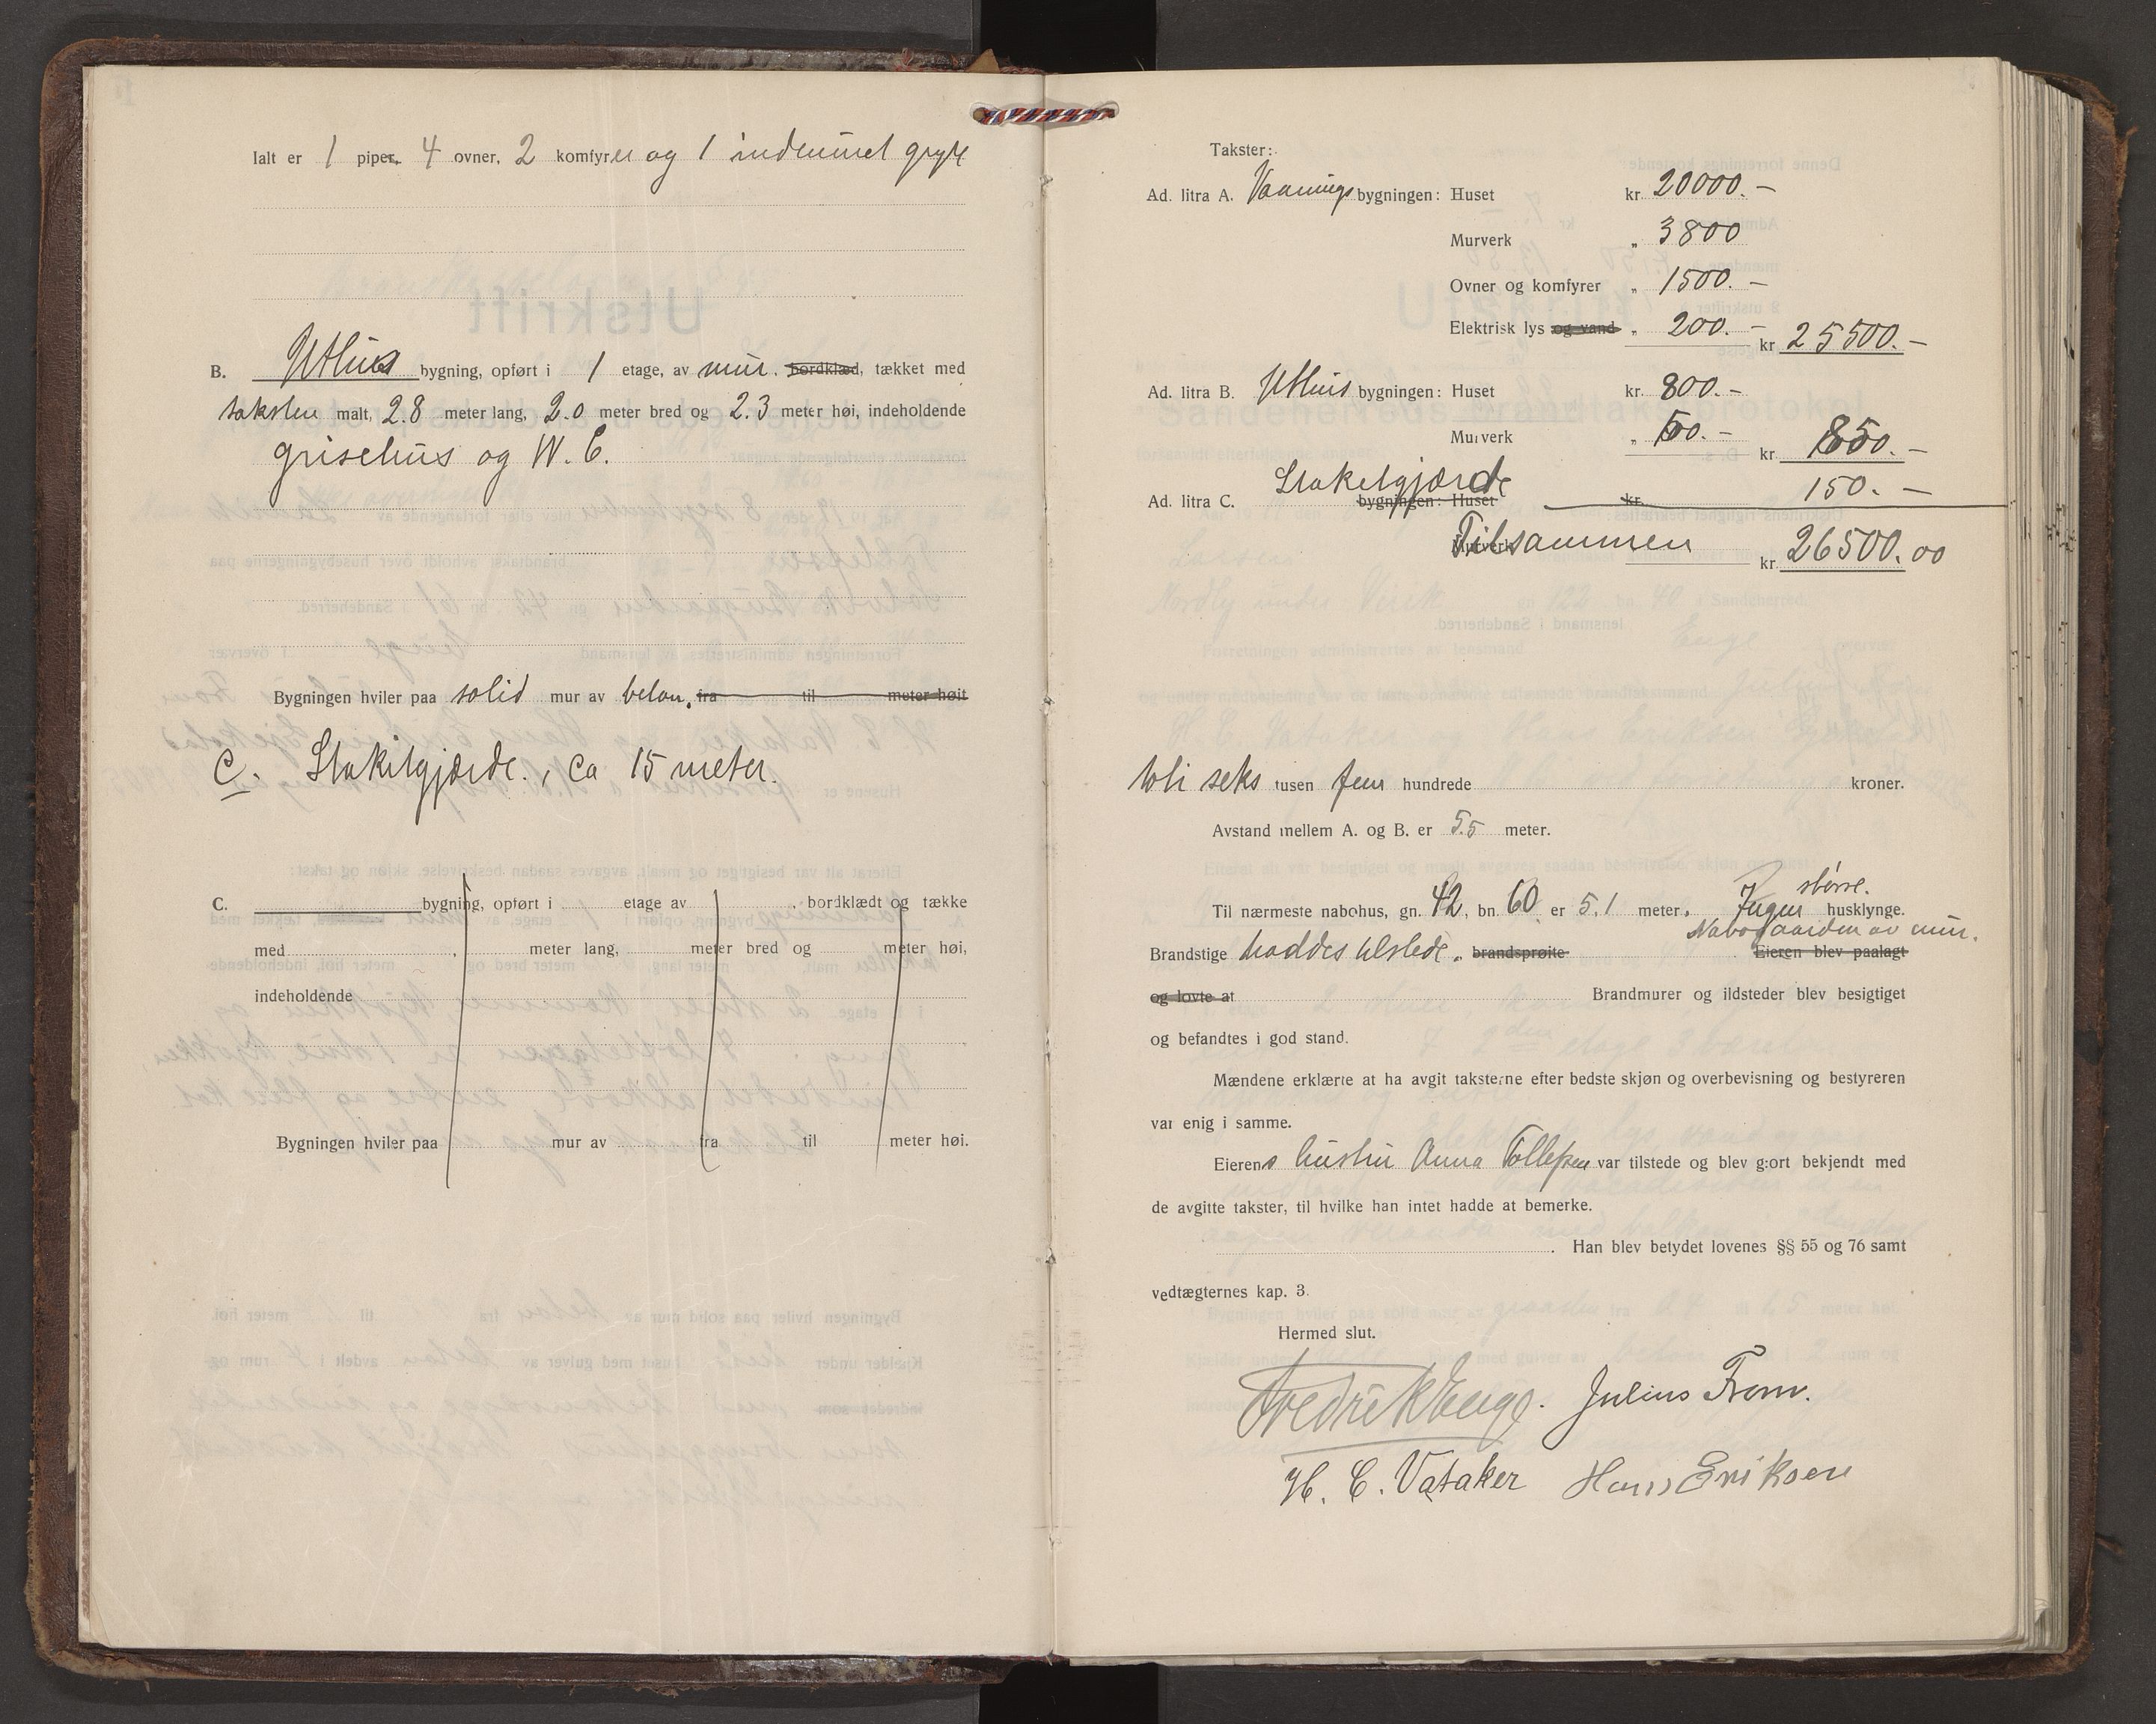 Ialt er 1 piper, 4 ovner, 2 komfyrer og 1 indemuret gryte
B. Uthus bygning, opført i 1 etage, av mur. bordklæd, tækket med
taksten malt, 2.8 meter lang, 2.0 meter bred og 2.3 meter høi, indeholdende
grisehus og W. C.
Bygningen hviler paa solid mur av beton, fra til meter høit
C. Stakitgjærde, ca 15 meter.
C. bygning, opført i etage av , bordklædt og tække
med , meter lang, meter bred og meter høi,
indeholdende
Bygningen hviler paa mur av fra til meter høi.
Takster:
Ad. litra A. Vaanings bygningen: Huset kr. 20000.-
Murverk „ 3800
Ovner og komfyrer „ 1500.-
Elektrisk lys og vand „ 200.- kr 25500.-
Ad. litra B. Uthus bygningen: Huset kr. 800.-
Murverk „ 50.- kr. 850.-
Ad. litra C. Stakitgjærde bygningen: Huset kr. 150.-
Murverk Tilsammen kr. 26500.00
toti seks tusen fem hundrede kroner.
Avstand mellem A. og B. er 5.5 meter.
Til nærmeste nabohus, gn. 42, bn. 60 er 5.1 meter. Ingen større husklynge.
Nabogaarden av mur.
Brandstige haddes tilstede. brandsprøite Eieren blev paalagt
og lovte at Brandmurer og ildsteder blev besigtiget
og befandtes i god stand.
Mændene erklærte at ha avgit taksterne efter bedste skjøn og overbevisning og bestyreren
var enig i samme.
Eierens hustru Anna Tollefsen var tilstede og blev gjort bekjendt med
de avgitte takster, til hvilke han intet hadde at bemerke.
. Han blev betydet lovenes §§ 55 og 76 samt
vedtægternes kap. 3.
Hermed slut.
Fredrik Enge. Julius From.
H. C. Vataker Hans Eriksen